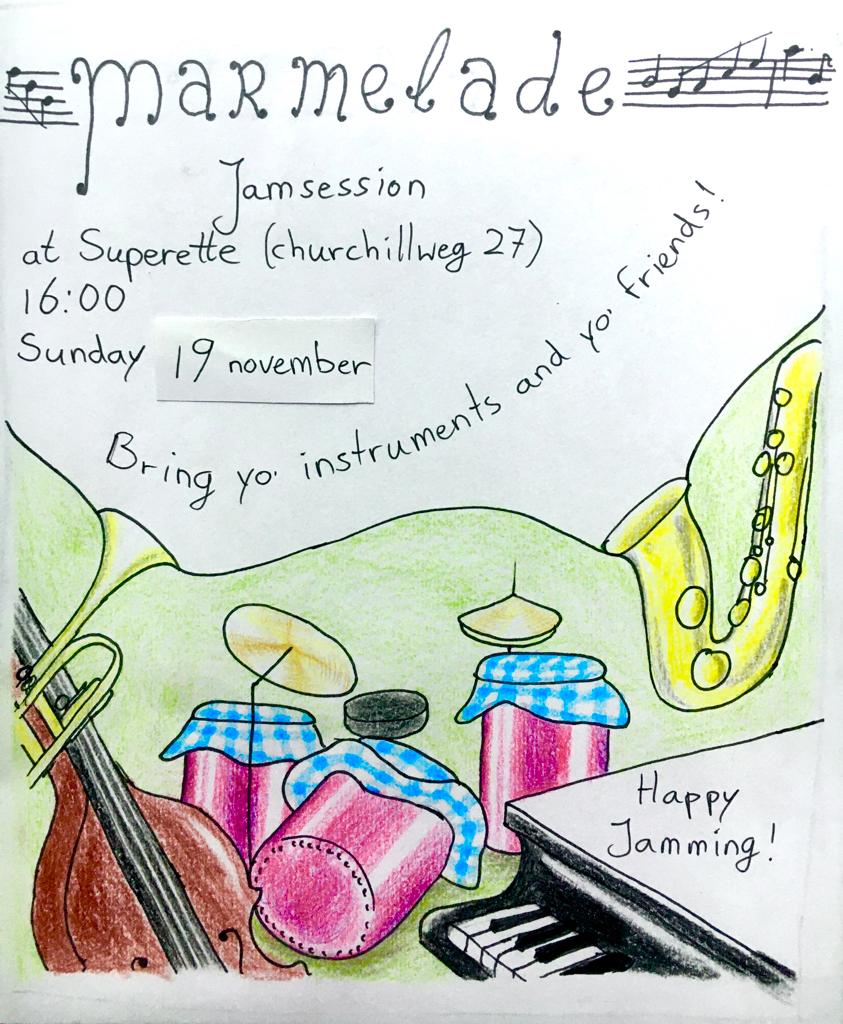 marmelade
Jamsession
at Superette (churchillweg 27)
16:00
Sunday 19 november
Bring yo' instruments and yo' friends!
Happy
Jamming!